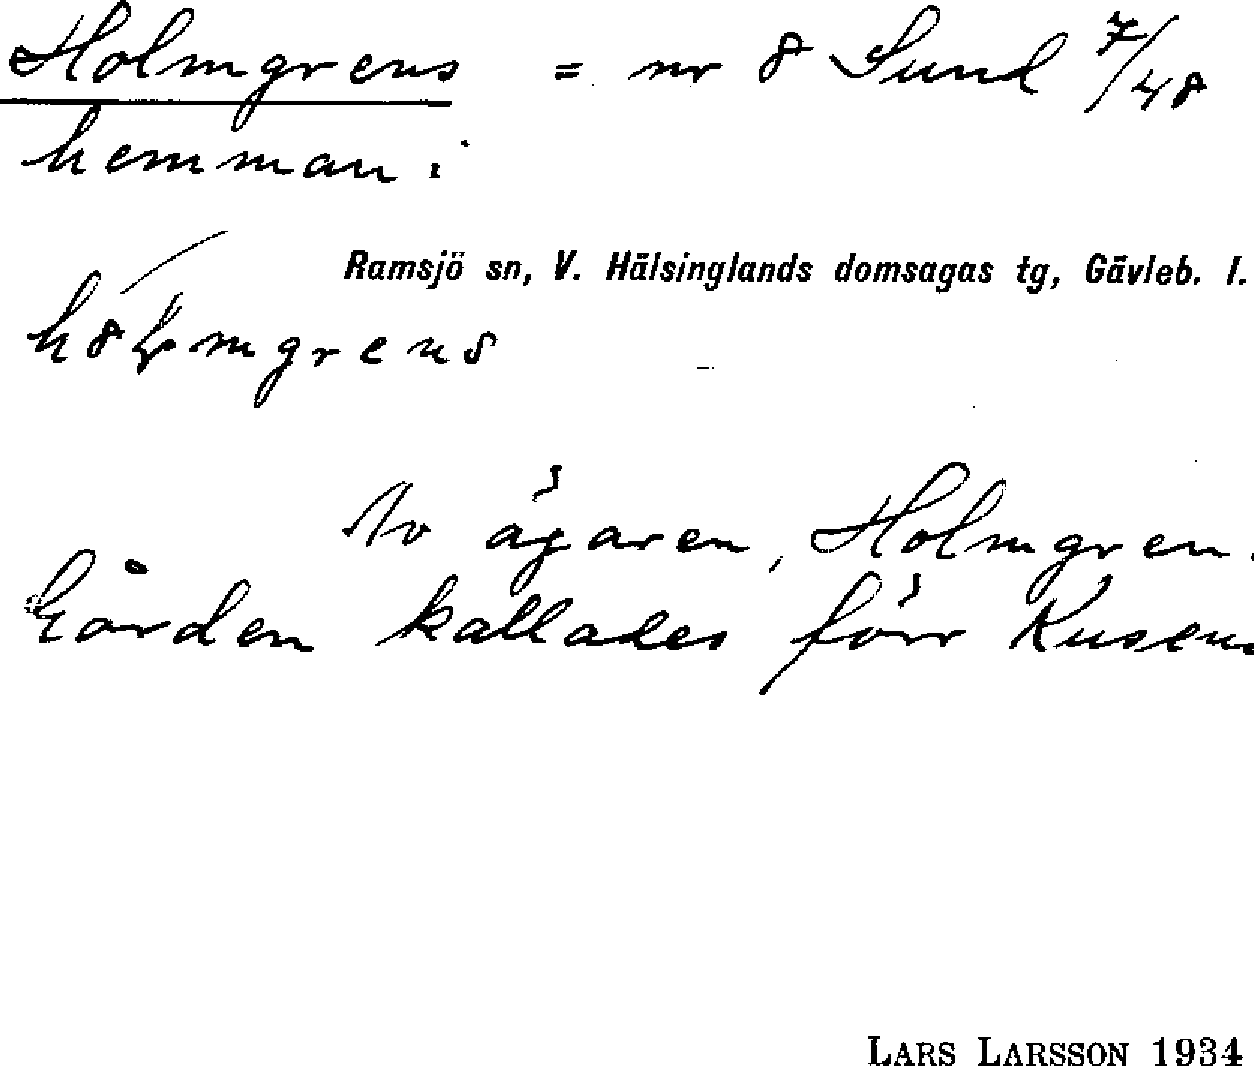 Holmgrens = nr 8 Sund 7/48
hemman i
Ramsjö sn, V. Hälsinglands domsagas tg, Gävleb. l.
Av ägaren, Holmgren.
Gården kallades förr Kusens
LARS LARSSON 1934